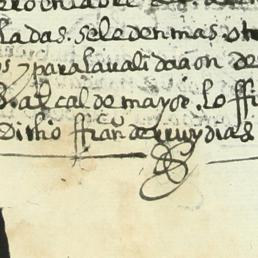 adas. se le den mas otr
os y para la validaçion de
S. alcalde mayor. lo ffi
Dicho ffran.co de rruy dias